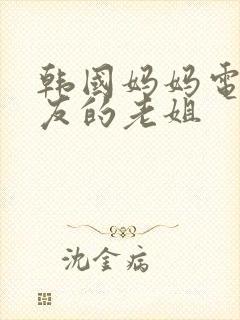 韩國妈妈電
友的老姐
沈金病